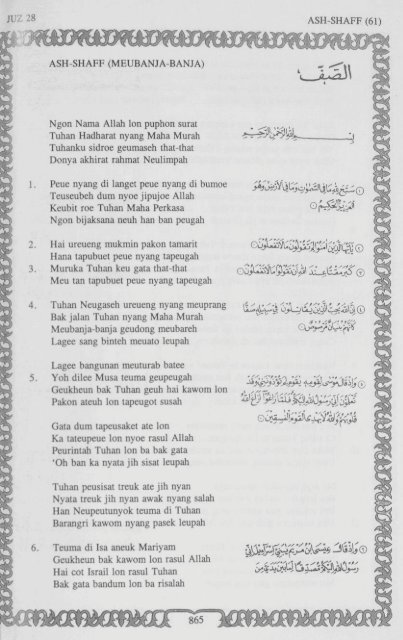 JUZ 28
ASH-SHAFF (61)
ASH-SHAFF (MEUBANJA-BANJA)
الصَّفّ
Ngon Nama Allah lon puphon surat
Tuhan Hadharat nyang Maha Murah
Tuhanku sidroe geumaseh that-that
Donya akhirat rahmat Neulimpah
بِسْمِ اللَّهِ الرَّحْمَٰنِ الرَّحِيمِ
1. Peue nyang di langet peue nyang di bumoe
Teuseubeh dum nyoe jipujoe Allah
Keubit roe Tuhan Maha Perkasa
Ngon bijaksana neuh han ban peugah
سَبَّحَ لِلَّهِ مَا فِي السَّمَاوَاتِ وَمَا فِي الْأَرْضِ وَهُوَ
الْعَزِيزُ الْحَكِيمُ
2. Hai ureueng mukmin pakon tamarit
Hana tapubuet peue nyang tapeugah
يَا أَيُّهَا الَّذِينَ آمَنُوا لِمَ تَقُولُونَ مَا لَا تَفْعَلُونَ
3. Muruka Tuhan keu gata that-that
Meu tan tapubuet peue nyang tapeugah
كَبُرَ مَقْتًا عِنْدَ اللَّهِ أَنْ تَقُولُوا مَا لَا تَفْعَلُونَ
4. Tuhan Neugaseh ureueng nyang meuprang
Bak jalan Tuhan nyang Maha Murah
Meubanja-banja geudong meubareh
Lagee sang binteh meuato leupah
إِنَّ اللَّهَ يُحِبُّ الَّذِينَ يُقَاتِلُونَ فِي سَبِيلِهِ صَفًّا
كَأَنَّهُمْ بُنْيَانٌ مَرْصُوصٌ
Lagee bangunan meuturab batee
5. Yoh dilee Musa teuma geupeugah
Geukheun bak Tuhan geuh hai kawom lon
Pakon ateuh lon tapeugot susah
وَإِذْ قَالَ مُوسَىٰ لِقَوْمِهِ يَا قَوْمِ لِمَ تُؤْذُونَنِي وَقَدْ
تَعْلَمُونَ أَنِّي رَسُولُ اللَّهِ إِلَيْكُمْ فَلَمَّا زَاغُوا أَزَاغَ اللَّهُ
قُلُوبَهُمْ وَاللَّهُ لَا يَهْدِي الْقَوْمَ الْفَاسِقِينَ
Gata dum tapeusaket ate lon
Ka tateupeue lon nyoe rasul Allah
Peurintah Tuhan lon ba bak gata
'Oh ban ka nyata jih sisat leupah
Tuhan peusisat treuk ate jih nyan
Nyata treuk jih nyan awak nyang salah
Han Neupeutunyok teuma di Tuhan
Barangri kawom nyang pasek leupah
6. Teuma di Isa aneuk Mariyam
Geukheun bak kawom lon rasul Allah
Hai cot Israil lon rasul Tuhan
Bak gata bandum lon ba risalah
وَإِذْ قَالَ عِيسَى ابْنُ مَرْيَمَ يَا بَنِي إِسْرَائِيلَ إِنِّي
رَسُولُ اللَّهِ إِلَيْكُمْ مُصَدِّقًا لِمَا بَيْنَ يَدَيَّ مِنَ
865